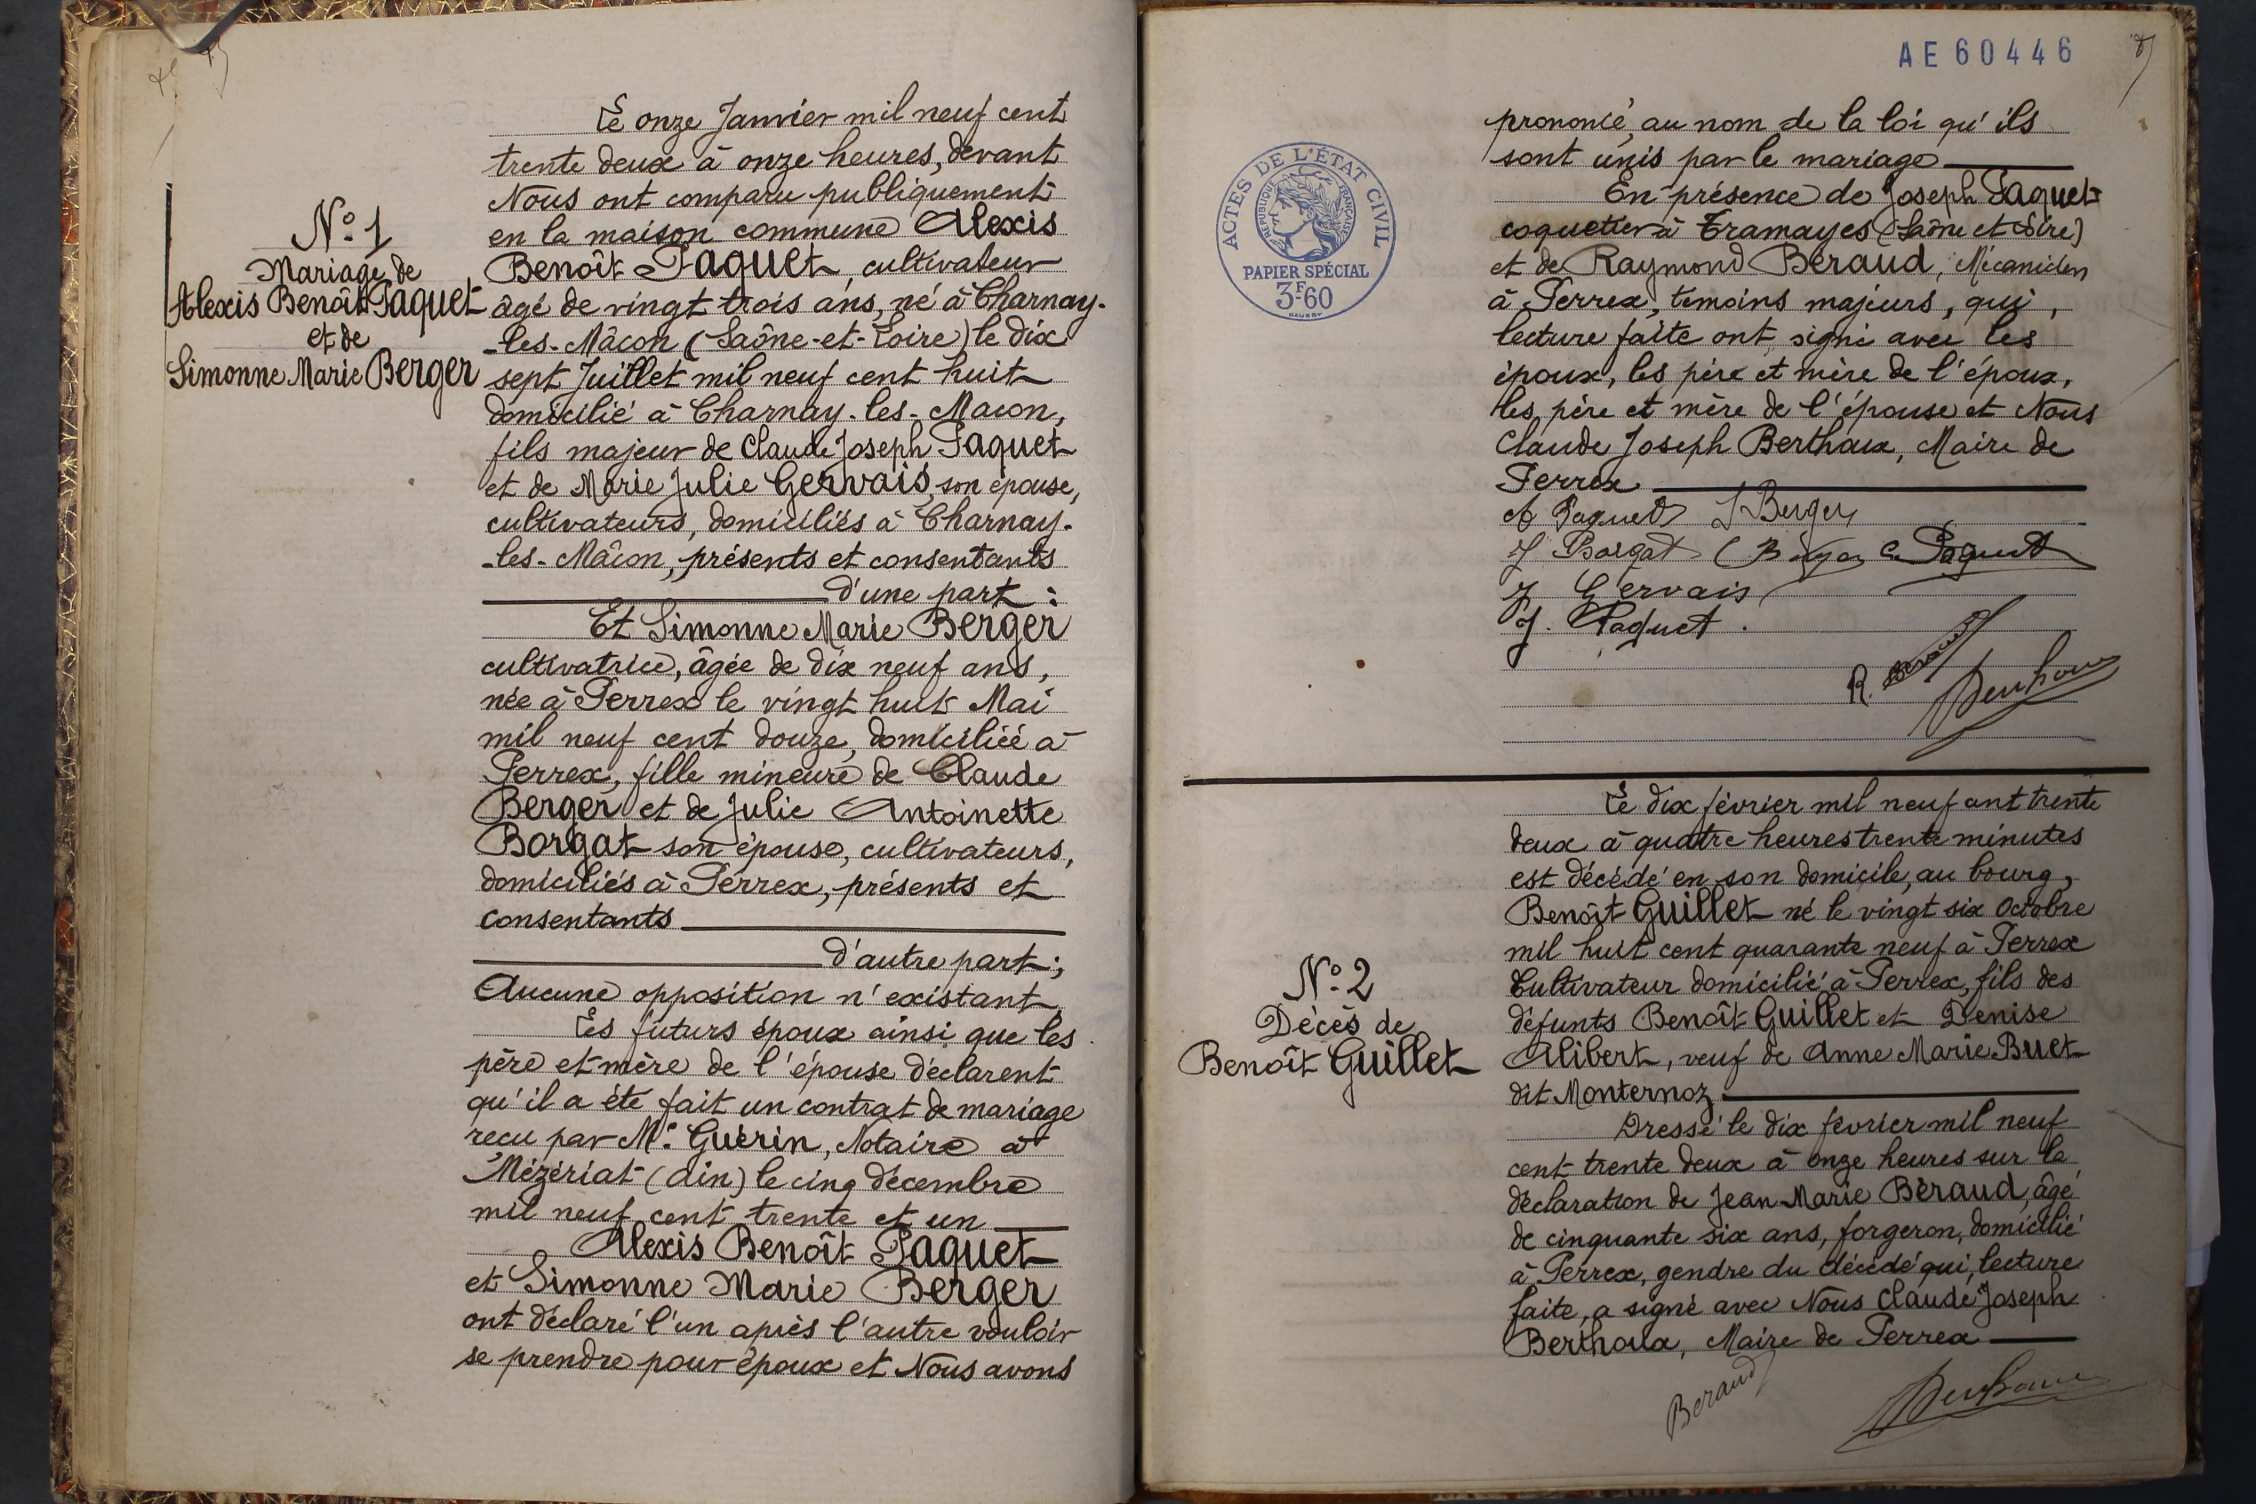 N° 1
Mariage de
Alexis Benoît Paquet
et de
Simonne Marie Berger
Le onze Janvier mil neuf cent
trente deux à onze heures, devant
Nous ont comparu publiquement
en la maison commune Alexis
Benoît Paquet, cultivateur
âgé de vingt trois ans, né à Charnay-
-les-Mâcon (Saône-et-Loire) le dix
sept Juillet mil neuf cent huit
domicilié à Charnay-les-Macon,
fils majeur de Claude Joseph Paquet
et de Marie Julie Gervais, son épouse,
cultivateurs, domiciliés à Charnay-
-les-Mâcon, présents et consentants
d'une part :
Et Simonne Marie Berger
cultivatrice, âgée de dix neuf ans,
née à Perrex le vingt huit Mai
mil neuf cent douze, domiciliée à
Perrex, fille mineure de Claude
Berger et de Julie Antoinette
Borgat son épouse, cultivateurs,
domiciliés à Perrex, présents et
consentants
d'autre part ;
Aucune opposition n'existant
Les futurs époux ainsi que les
père et mère de l'épouse déclarent
qu'il a été fait un contrat de mariage
recu par Me Guérin, Notaire à
Mézériat (Ain) le cinq décembre
mil neuf cent trente et un
Alexis Benoît Paquet
et Simonne Marie Berger
ont déclaré l'un après l'autre vouloir
se prendre pour époux et Nous avons
AE 60446
ACTES DE L'ÉTAT CIVIL
RÉPUBLIQUE FRANÇAISE
PAPIER SPÉCIAL
3F60
prononcé, au nom de la loi qu'ils
sont unis par le mariage
En présence de Joseph Paquet
coquetier à Tramayes (Saône et Loire)
et de Raymond Béraud, Mécanicien
à Perrex, témoins majeurs, qui,
lecture faite ont signé avec les
époux, les père et mère de l'époux,
les père et mère de l'épouse et Nous
Claude Joseph Berthoux, Maire de
Perrex
A Paquet S Berger
J Borgat C Berger C Paquet
J Gervais
J. Paquet.
R. Beraud
Berthoux
N° 2
Décès de
Benoît Guillet
Le dix février mil neuf cent trente
deux à quatre heures trente minutes
est décédé en son domicile, au bourg,
Benoît Guillet né le vingt six Octobre
mil huit cent quarante neuf à Perrex
Cultivateur domicilié à Perrex, fils des
défunts Benoît Guillet et Denise
Alibert, veuf de Anne Marie Buet
dit Monternoz
Dressé le dix février mil neuf
cent trente deux à onze heures sur la
déclaration de Jean Marie Béraud, âgé
de cinquante six ans, forgeron, domicilié
à Perrex, gendre du décédé qui, lecture
faite, a signé avec Nous Claude Joseph
Berthoux, Maire de Perrex
Beraud
Berthoux